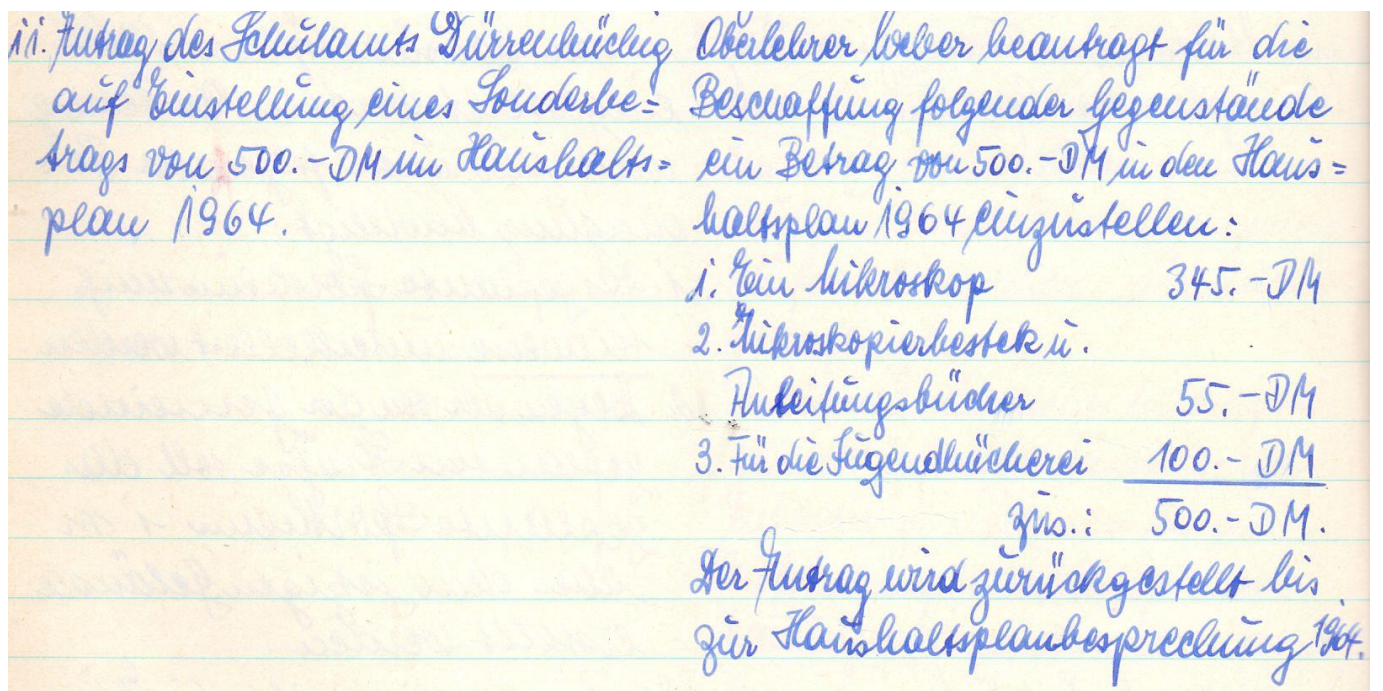 11. Antrag des Schulamts Dürrenbüchig
auf Einstellung eines Sonderbe=
trags von 500.-DM im Haushalts=
plan 1964.
Oberlehrer Weber beantragt für die
Beschaffung folgender Gegenstände
ein Betrag von 500.-DM in den Haus=
haltsplan 1964 einzustellen:
1. Ein Mikroskop 345.-DM
2. Mikroskopierbestek u.
Anleitungsbücher 55.-DM
3. Für die Jugendbücherei 100.-DM
zus.: 500.-DM.
Der Antrag wird zurückgestellt bis
zur Haushaltsplanbesprechung 1964.